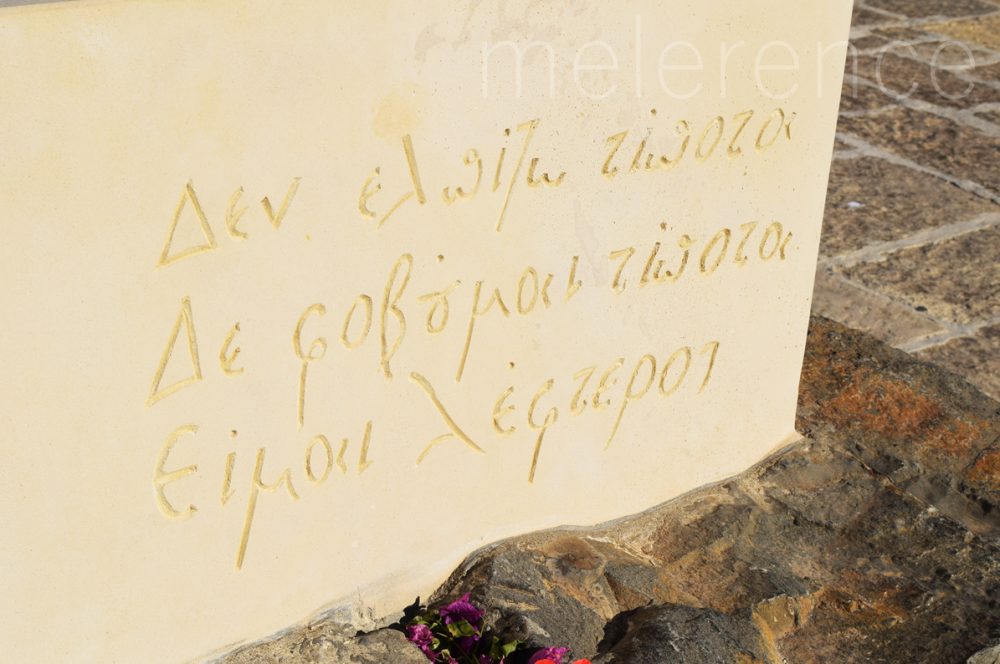 melerence
Δεν ελπίζω τίποτα
Δε φοβȣ́μαι τίποτα
Είμαι λέφτερος